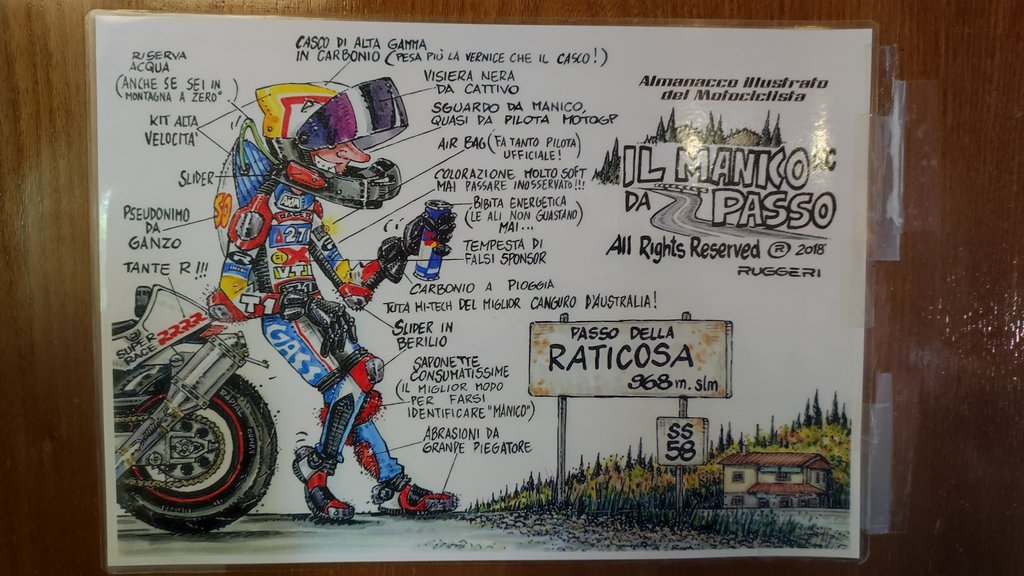 CASCO DI ALTA GAMMA
IN CARBONIO (PESA PIÙ LA VERNICE CHE IL CASCO!)
RISERVA
ACQUA
(ANCHE SE SEI IN
MONTAGNA A ZERO°)
KIT ALTA
VELOCITA'
SLIDER
PSEUDONIMO
DA
GANZO
TANTE R!!!
VISIERA NERA
DA CATTIVO
SGUARDO DA MANICO,
QUASI DA PILOTA MOTOGP
AIR BAG (FA TANTO PILOTA
UFFICIALE!)
COLORAZIONE MOLTO SOFT
MAI PASSARE INOSSERVATO!!!)
BIBITA ENERGETICA
(LE ALI NON GUASTANO)
MAI...
TEMPESTA DI
FALSI SPONSOR
CARBONIO A PIOGGIA
TUTA HI-TECH DEL MIGLIOR CANGURO D'AUSTRALIA!
SLIDER IN
BERILIO
SAPONETTE
CONSUMATISSIME
(IL MIGLIOR MODO
PER FARSI
IDENTIFICARE "MANICO")
ABRASIONI DA
GRANDE PIEGATORE
27
GASS
SUPER
RACE
RRRR
Almanacco Illustrato
del Motociclista
IL MANICO
DA PASSO
All Rights Reserved ® 2018
RUGGERI
PASSO DELLA
RATICOSA
968 m. slm
SS
58